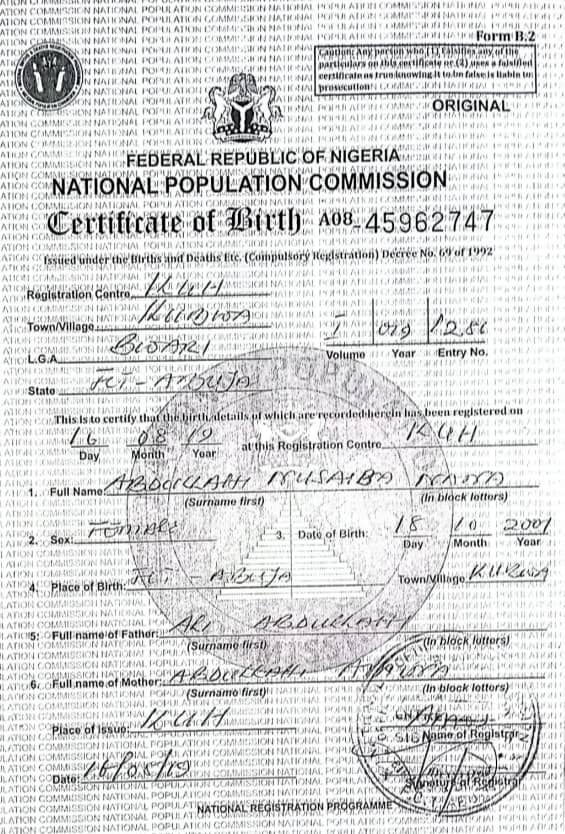 Form B.2
Caution: Any person who (1) falsifies any of the
particulars on this certificate or (2) uses a falsified
certificate as true knowing it to be false is liable to
prosecution
ORIGINAL
FEDERAL REPUBLIC OF NIGERIA
NATIONAL POPULATION COMMISSION
Certificate of Birth A08-45962747
Issued under the Births and Deaths Etc. (Compulsory Registration) Decree No. 69 of 1992
Registration Centre KUH
Town/Village KUBWA
L.G.A. BWARI
State FCT-ABUJA
Volume Year Entry No.
This is to certify that the birth, details of which are recorded herein has been registered on
16 08 19 at this Registration Centre KUH
Day Month Year
1. Full Name: ABDULLAHI MUSAIBA
(Surname first) (In block letters)
2. Sex: Female 3. Date of Birth: 18 10 2001
Day Month Year
4. Place of Birth: FCT - ABUJA Town/Village KUBWA
5: Full name of Father: ALI ABDULLAHI
(Surname first) (In block letters)
6. Full name of Mother: ABDULLAHI
(Surname first) (In block letters)
Place of Issue: KUH
Name of Registrar
Date: 16/08/19
Signature of Registrar
NATIONAL REGISTRATION PROGRAMME